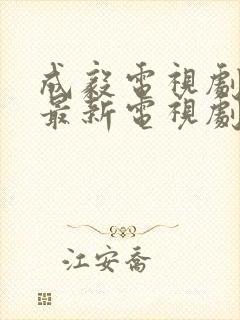 成毅電視劇
最新電視劇
江安喬